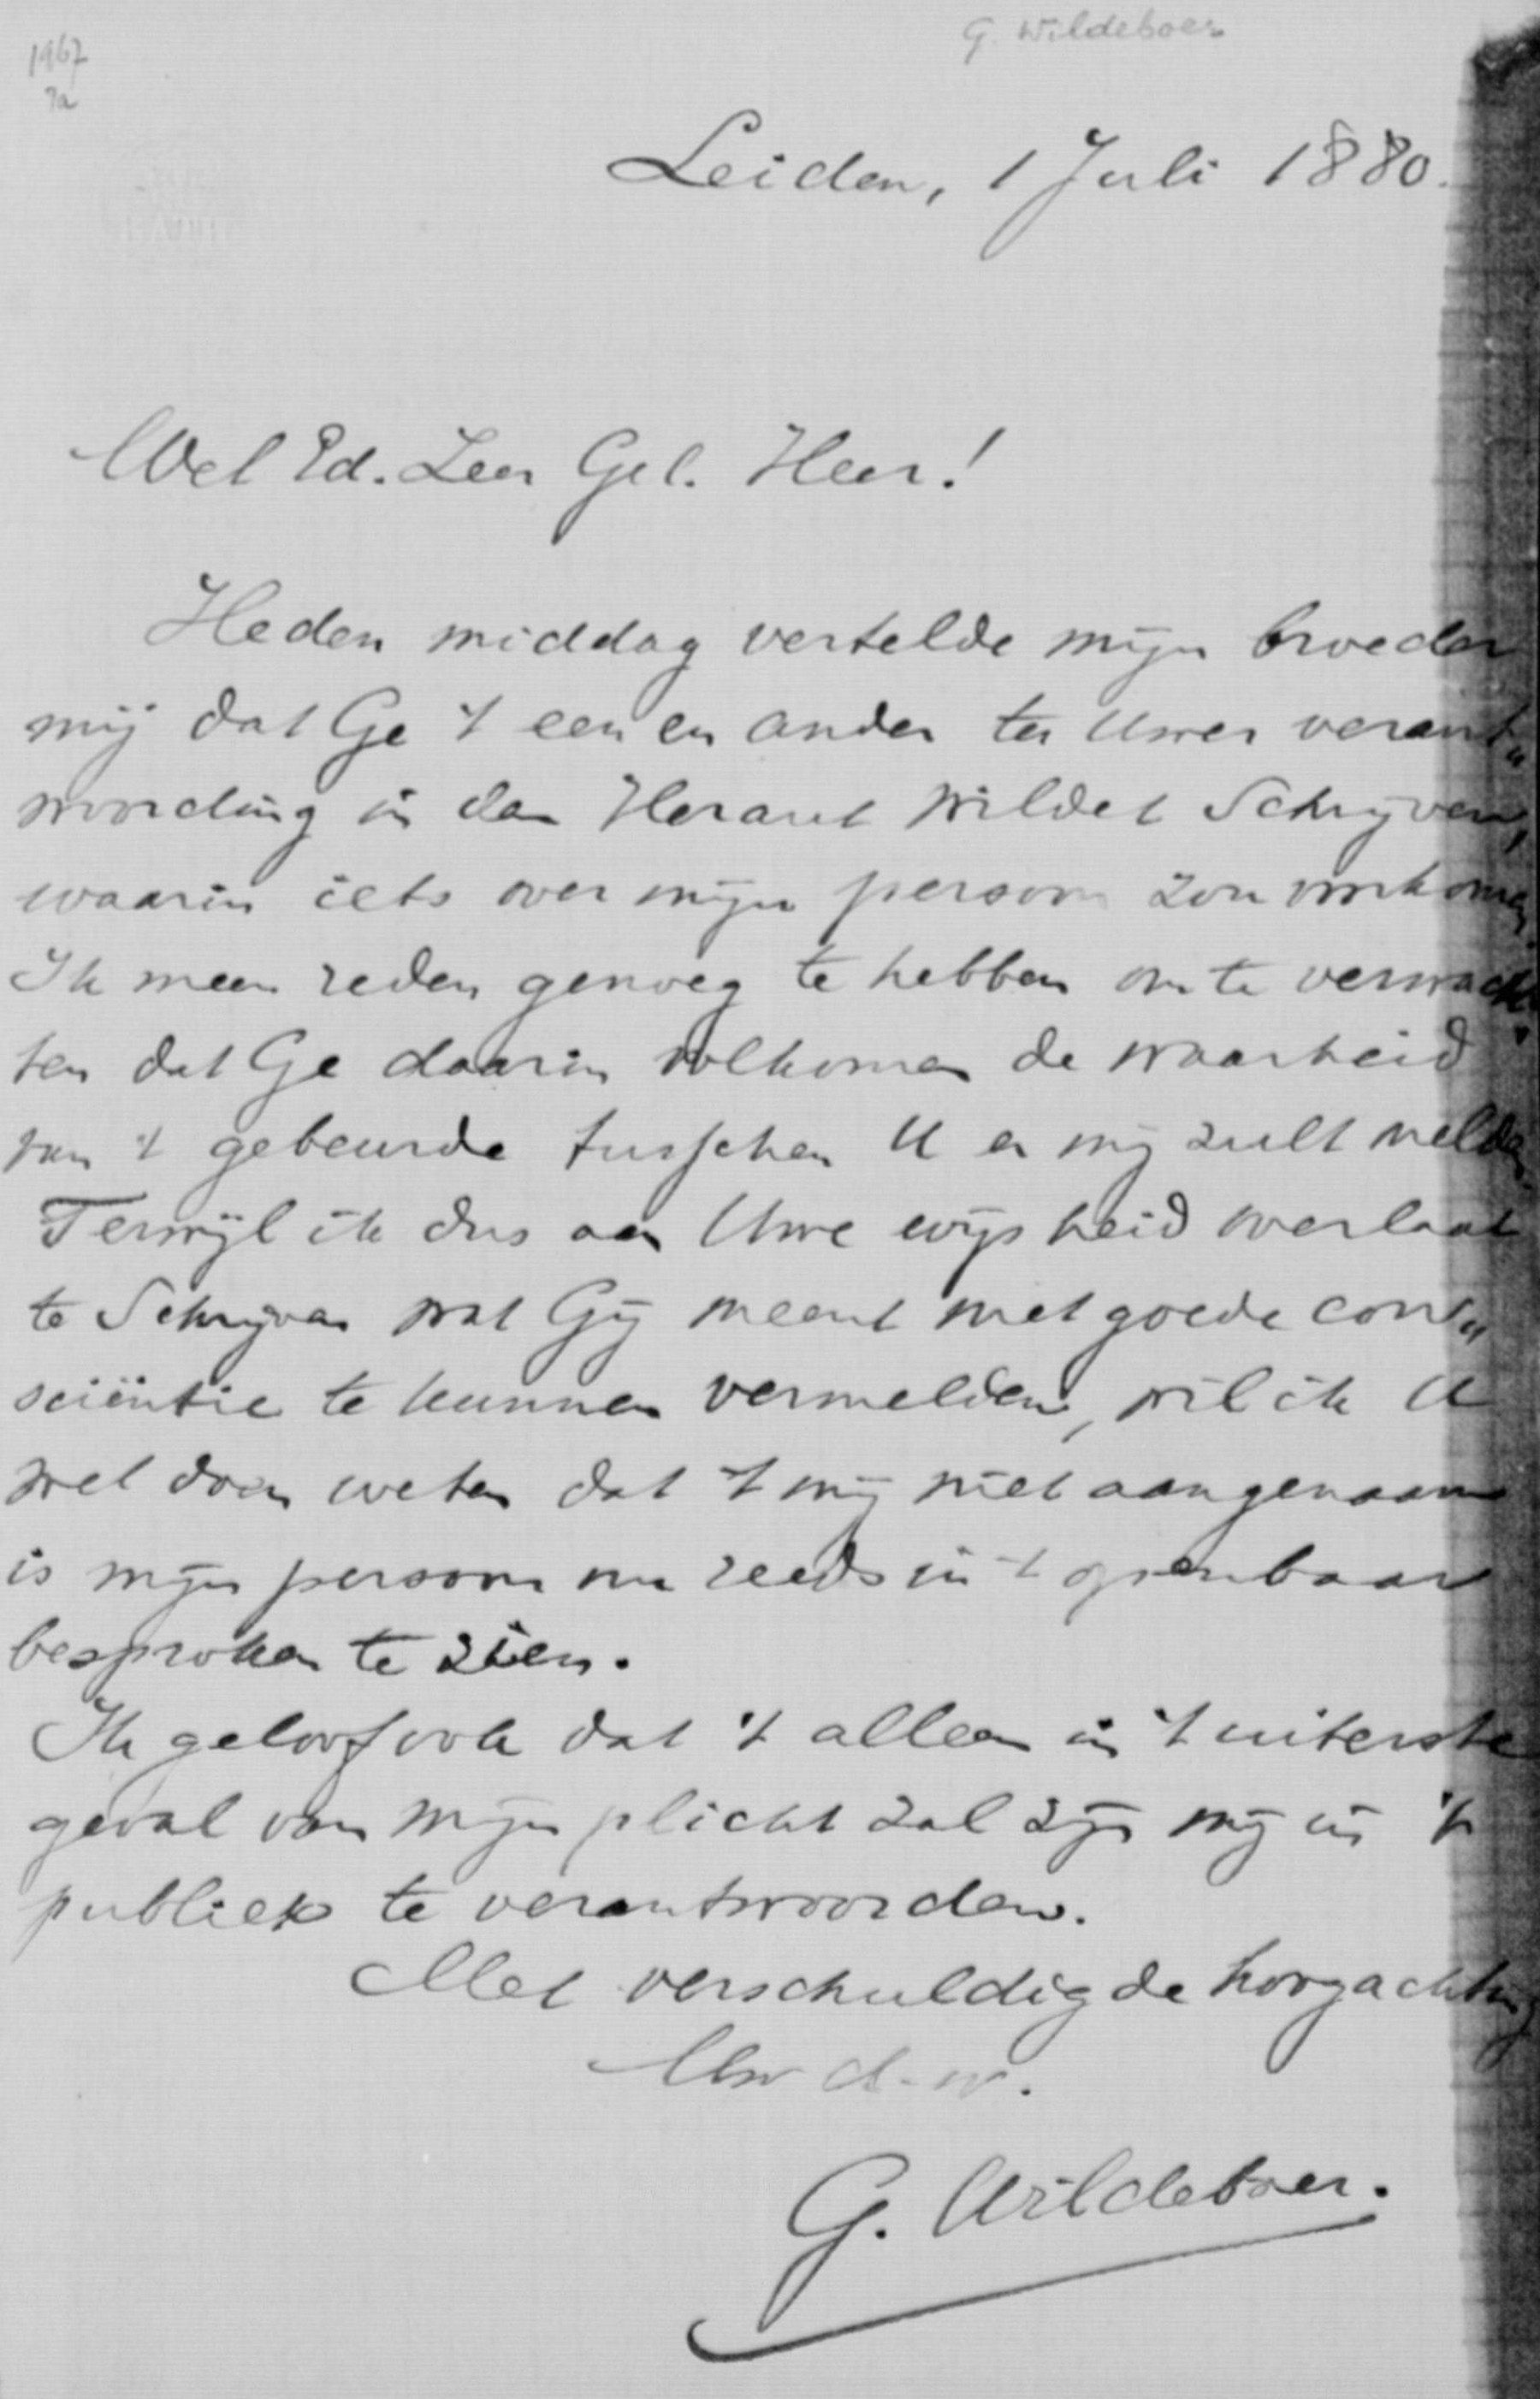 G. Wildeboer
1967
7a
Leiden, 1 Juli 1880.
Wel Ed. Zeer Gel. Heer!
Heden middag vertelde mijn broeder
mij dat Ge 't een en ander ter Uwer verant„
woording in den Heraut wildet schrijven,
waarin iets over mijn persoon zou voorkomen
Ik meen reden genoeg te hebben om te verwach„
ten dat Ge daarin volkomen de waarheid
van 't gebeurde tusschen U en mij zult melden.
Terwijl ik dus aan Uwe wijsheid overlaat
te schrijven wat Gij meent met goede con„
sciëntie te kunnen vermelden, wil ik U
wel doen weten dat 't mij niet aangenaam
is mijn persoon nu reeds in 't openbaar
besproken te zien.
Ik geloof ook dat 't alleen in 't uiterste
geval van mijn plicht zal zijn mij in 't
publiek te verantwoorden.
Met verschuldigde hoogachting
Uw d.w.
G. Wildeboer.